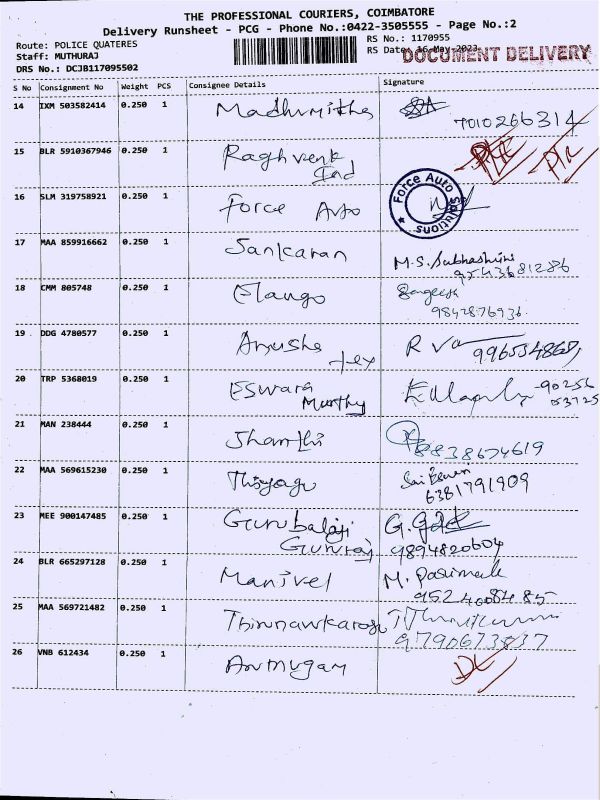 THE PROFESSIONAL COURIERS, COIMBATORE
Delivery Runsheet - PCG - Phone No.:0422-3505555 - Page No.:2
Route: POLICE QUATERES
RS No.: 1170955
Staff: MUTHURAJ
RS Date: 16-May-2023
DOCUMENT DELIVERY
DRS No.: DCJB117095502
S No Consignment No Weight PCS Consignee Details Signature
14 IXM 503582414 0.250 1 Madhumitha
7010266314
15 BLR 5910367946 0.250 1 Raghvenk
Ind
16 SLM 319758921 0.250 1 Force Auto
Force Auto Solutions
17 MAA 859916662 0.250 1 Sankaran M.S. Subhashini
9543681286
18 CMM 805748 0.250 1 Elango Sangeeth
9842876936
19 DDG 4780577 0.250 1 Anusha
tex
20 TRP 5368019 0.250 1 Eswara
Murthy
21 MAN 238444 0.250 1 Shanthi
8838674619
22 MAA 569615230 0.250 1 Thiyagu
6381791909
23 MEE 900147485 0.250 1 Gurubalaji
Gururaj 9894820604
24 BLR 665297128 0.250 1 Manivel
9524008485
25 MAA 569721482 0.250 1
9790673537
26 VNB 612434 0.250 1 Arumugam
DL